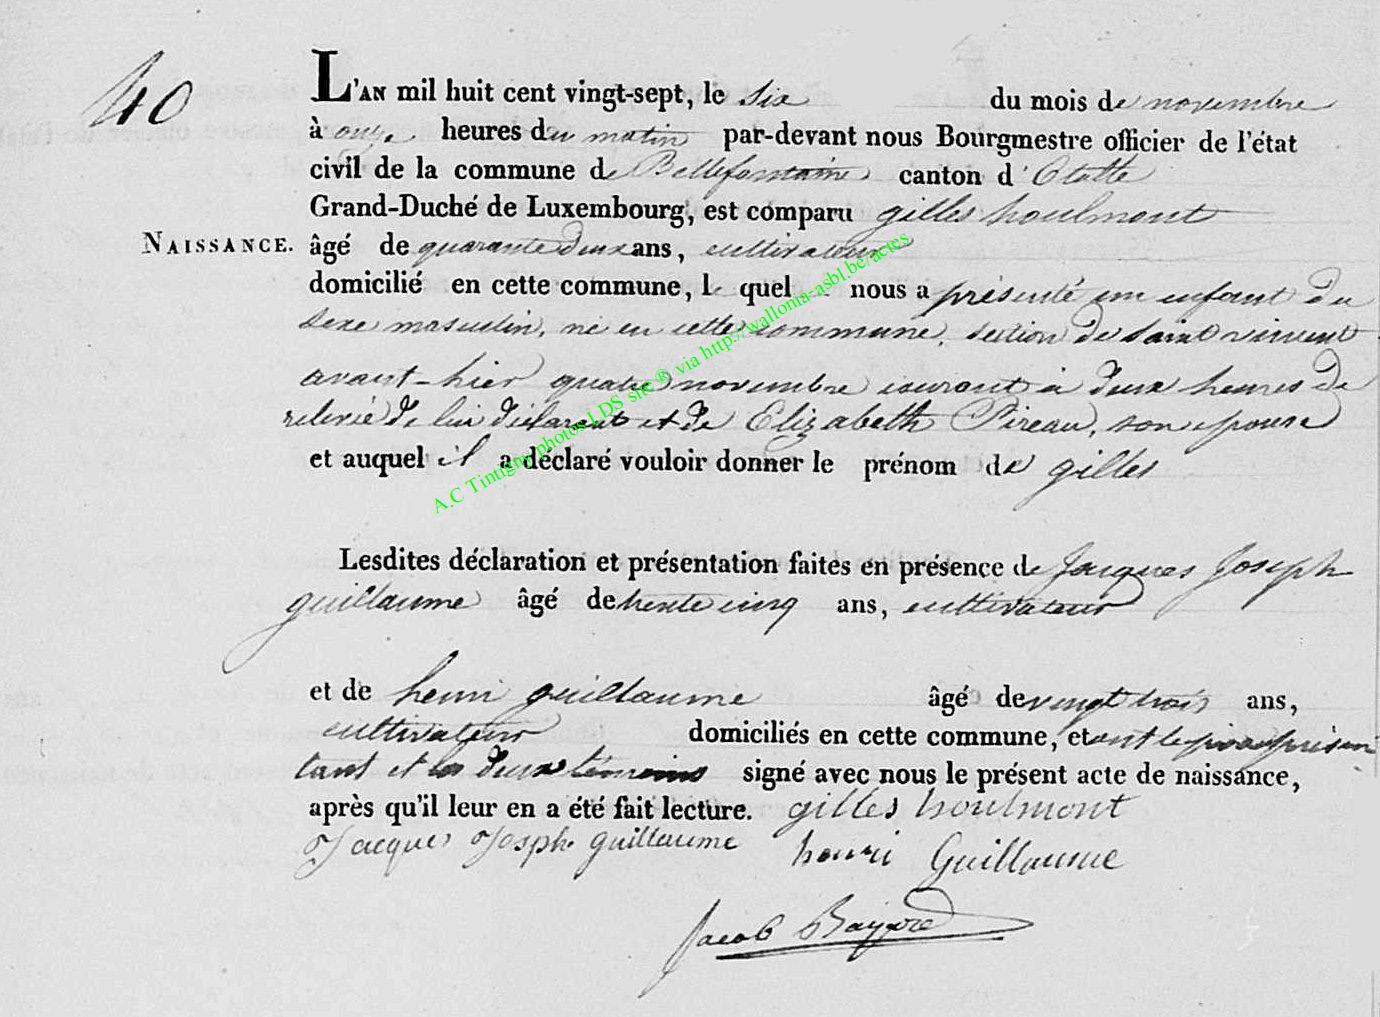 40
L'AN mil huit cent vingt-sept, le six du mois de novembre
à onze heures du matin par-devant nous Bourgmestre officier de l'état
civil de la commune de Bellefontaine canton d'Etalle
Grand-Duché de Luxembourg, est comparu gilles houlmont
NAISSANCE. âgé de quarante deux ans, cultivateur
domicilié en cette commune, lequel nous a présenté un enfant du
sexe masculin, né en cette commune, section de saint vincent
avant-hier quatre novembre courant à deux heures de
relevée de lui déclarant et de Elizabeth Pireau, son epouse
et auquel il a déclaré vouloir donner le prénom de gilles
A.C Tintigny photos LDS site ® via http://wallonia-asbl.be/actes
Lesdites déclaration et présentation faites en présence de Jacques Joseph
guillaume âgé de trente cinq ans, cultivateur
et de henri guillaume âgé de vingt trois ans,
cultivateur domiciliés en cette commune, et ont le père présen
tant et les deux témoins signé avec nous le présent acte de naissance,
après qu'il leur en a été fait lecture. gilles houlmont
Jacques Joseph guillaume henri Guillaume
Jacob